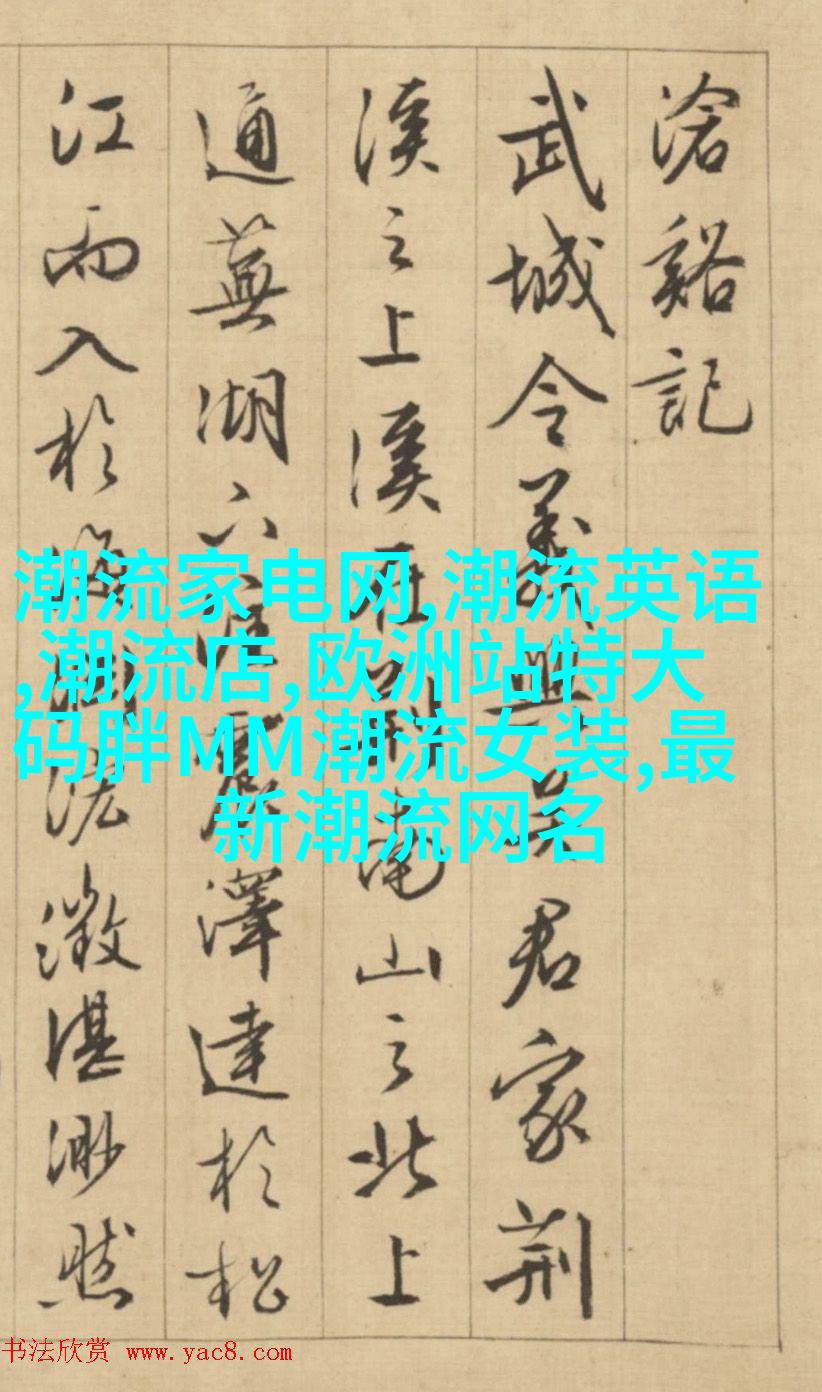 滄谿記
武城令義興吳君家荊
溪之上溪在荊南山之北上
通蕪湖下匯震澤達於松
江而入於海澂湛渺然
潮流家电网,潮流英语
,潮流店,欧洲站特大
码胖MM潮流女装,最
新潮流网名
书法欣赏 www.yac8.com